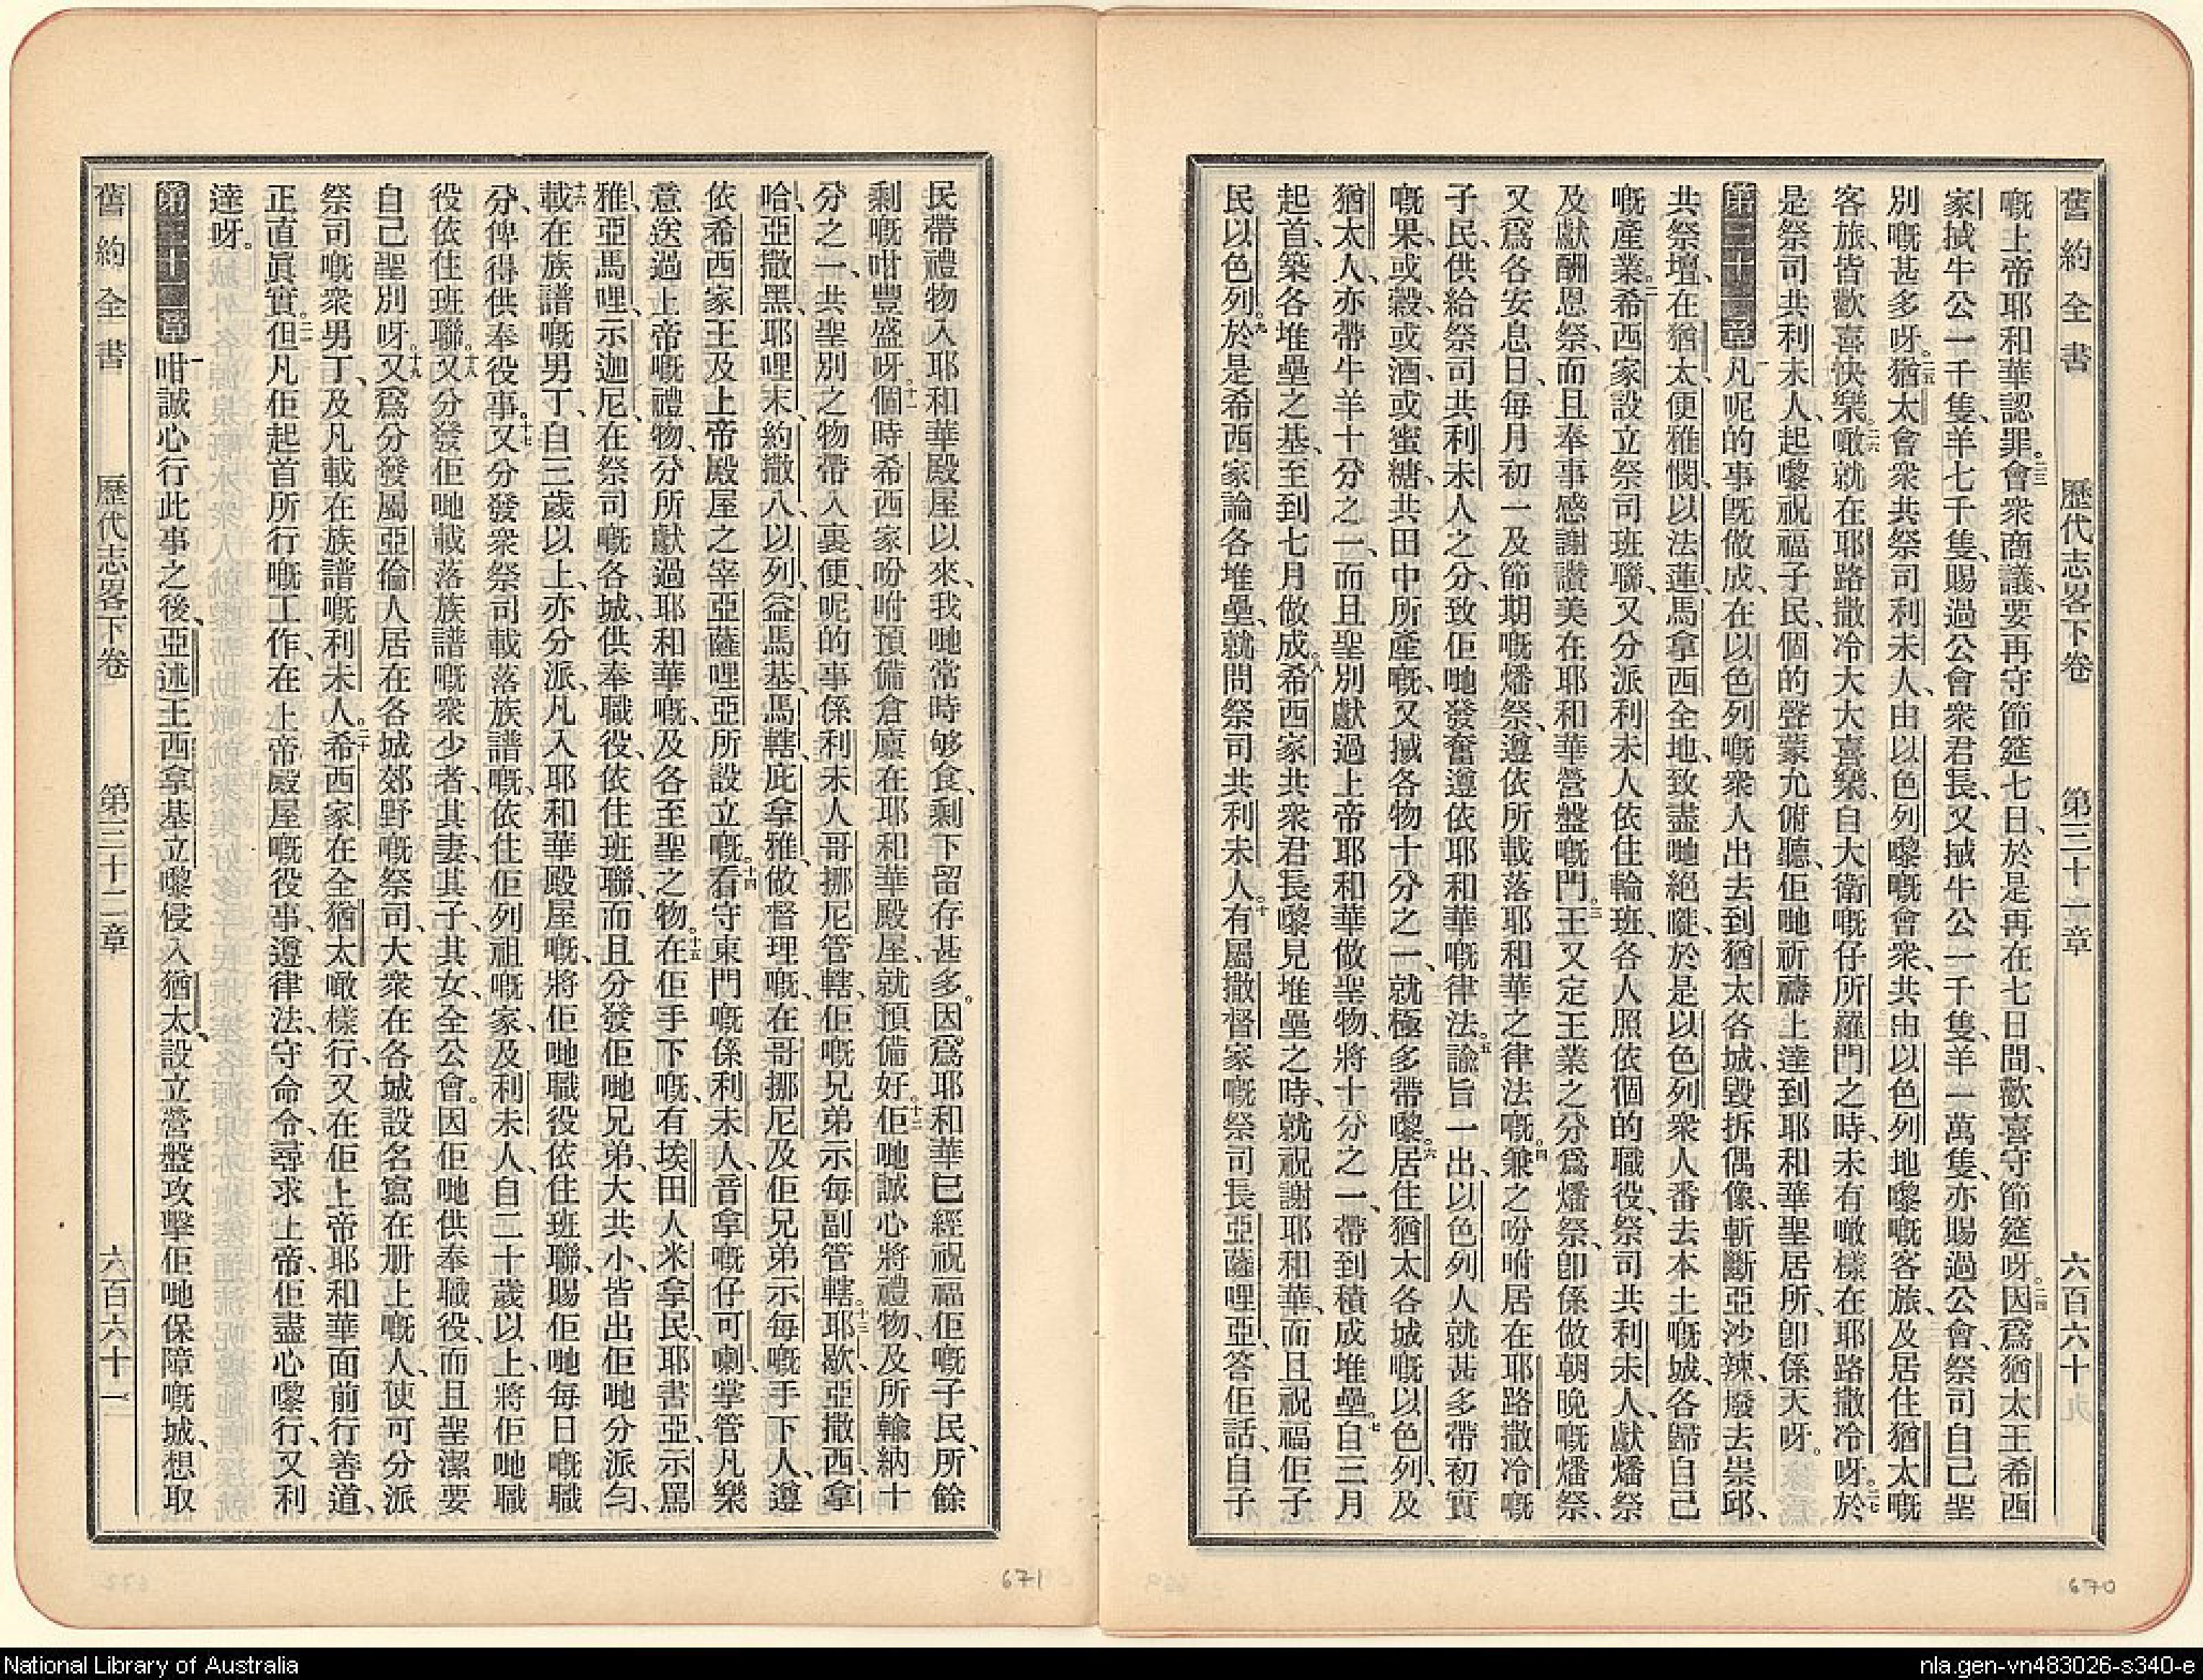 舊約全書 歷代志畧下卷 第三十一章 六百六十
嘅上帝耶和華認罪。二三會衆商議、要再守節筵七日、於是再在七日間、歡喜守節筵呀。二四因爲猶太王希西
家搣牛公一千隻、羊七千隻、賜過公會衆君長、又搣牛公一千隻、羊一萬隻、亦賜過公會、祭司自己聖
別嘅甚多呀。二五猶太會衆共祭司利未人、由以色列嚟嘅會衆、共由以色列地嚟嘅客旅、及居住猶太嘅
客旅、皆歡喜快樂。二六噉就在耶路撒冷大大喜樂、自大衛嘅仔所羅門之時、未有噉樣在耶路撒冷呀。二七於
是祭司共利未人、起嚟祝福子民、個的聲蒙允俯聽、佢哋祈禱上達到耶和華聖居所、卽係天呀。
第三十一章 一凡呢的事旣做成、在以色列嘅衆人出去到猶太各城、毀拆偶像、斬斷亞沙辣、廢去崇邱、
共祭壇、在猶太、便雅憫、以法蓮、馬拿西全地、致盡哋絕嘥、於是以色列衆人番去本土嘅城、各歸自己
嘅產業。二希西家設立祭司班聯、又分派利未人依住輪班、各人照依個的職役、祭司共利未人、獻燔祭
及獻酬恩祭、而且奉事感謝讚美在耶和華營盤嘅門。三王又定王業之分爲燔祭、卽係做朝晚嘅燔祭、
又爲各安息日、每月初一及節期嘅燔祭、遵依所載落耶和華之律法嘅。四兼之吩咐居在耶路撒冷嘅
子民、供給祭司共利未人之分、致佢哋發奮遵依耶和華嘅律法。五諭旨一出、以色列人就甚多帶初實
嘅果、或穀、或酒、或蜜糖、共田中所產嘅、又搣各物十分之一、就極多帶嚟。六居住猶太各城嘅以色列、及
猶太人、亦帶牛羊十分之一、而且聖別獻過上帝耶和華做聖物、將十分之一、帶到積成堆壘。七自三月
起首、築各堆壘之基、至到七月做成。八希西家共衆君長嚟見堆壘之時、就祝謝耶和華、而且祝福佢子
民以色列。九於是希西家論各堆壘、就問祭司共利未人。十有屬撒督家嘅祭司長亞薩哩亞、答佢話、自子
670
民帶禮物入耶和華殿屋以來、我哋常時够食、剩下留存甚多。因爲耶和華已經祝福佢嘅子民、所餘
剩嘅咁豐盛呀。十一個時希西家吩咐預備倉廩在耶和華殿屋、就預備好。十二佢哋誠心將禮物、及所輸納十
分之一、共聖別之物帶入裏便、呢的事係利未人哥挪尼管轄、佢嘅兄弟示每副管轄。十三耶歇、亞撒西、拿
哈、亞撒黑、耶哩末、約撒八、以列、益馬基、馬轄、庇拿雅、做督理嘅、在哥挪尼及佢兄弟示每嘅手下人、遵
依希西家王及上帝殿屋之宰亞薩哩亞所設立嘅。十四看守東門嘅係利未人、音拿嘅仔可喇、掌管凡樂
意送過上帝嘅禮物、分所獻過耶和華嘅、及各至聖之物。十五在佢手下嘅、有埃田人米拿民、耶書亞、示罵
雅、亞馬哩、示迦尼、在祭司嘅各城、供奉職役、依住班聯、而且分發佢哋兄弟、大共小、皆出佢哋分派勻、
十六載在族譜嘅男丁、自三歲以上、亦分派、凡入耶和華殿屋嘅、將佢哋職役依住班聯、賜佢哋每日嘅職
分、俾得供奉役事。十七又分發衆祭司載落族譜嘅、依住佢列祖嘅家、及利未人、自二十歲以上、將佢哋職
役依住班聯。十八又分發佢哋載落族譜嘅衆少者、其妻、其子、其女、全公會。因佢哋供奉職役、而且聖潔要
自己聖別呀。十九又爲分發屬亞倫人居在各城郊野嘅祭司、大衆在各城設名寫在册上嘅人、使可分派
祭司嘅衆男丁、及凡載在族譜嘅利未人。二十希西家在全猶太噉樣行、又在佢上帝耶和華面前行善道、
正直眞實。二一但凡佢起首所行嘅工作、在上帝殿屋嘅役事、遵律法、守命令、尋求上帝、佢盡心嚟行、又利
達呀。
第三十二章 一咁誠心行此事之後、亞述王西拿基立嚟侵入猶太、設立營盤攻擊佢哋保障嘅城、想取
舊約全書 歷代志畧下卷 第三十二章 六百六十一
671
National Library of Australia
nla.gen-vn483026-s340-e